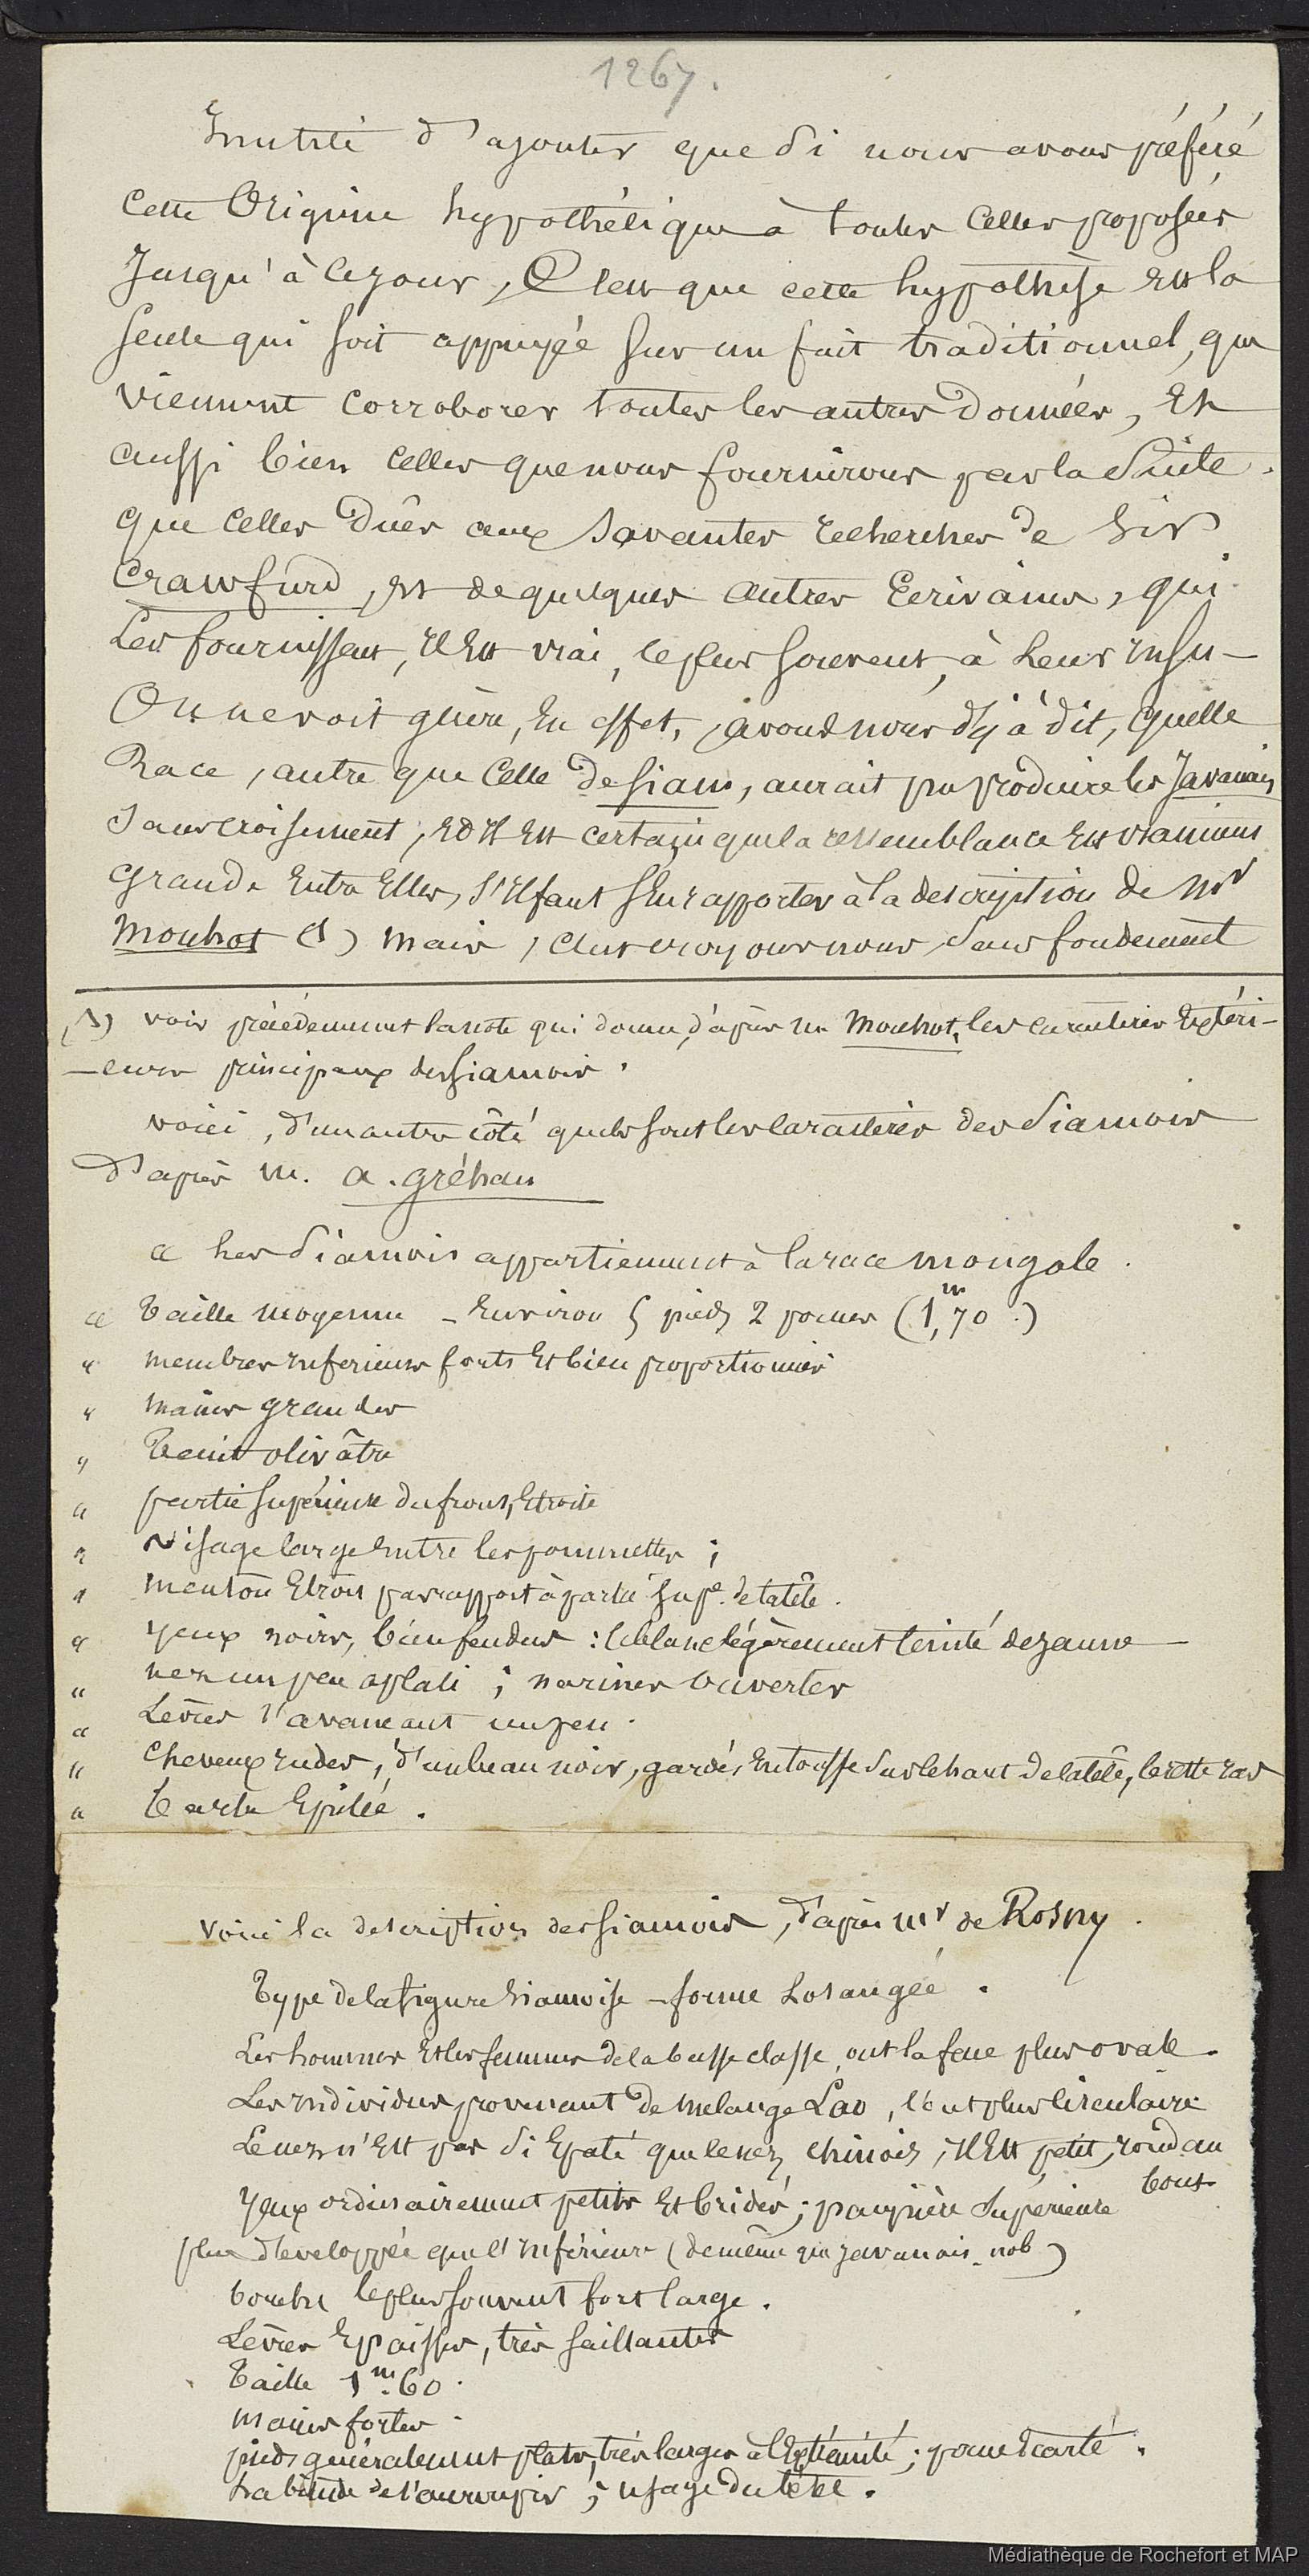 1267.
Inutile d'ajouter que si nous avons préféré
cette Origine hypothétique à toutes celles proposées
Jusqu'à ce jour, C'est que cette hypothèse est la
seule qui soit appuyée sur un fait traditionnel, que
viennent corroborer toutes les autres données, et
aussi bien celles que nous fournirons par la Suite.
que celles dues aux savantes recherches de Sir
Crawfurd, et de quelques autres Ecrivains, qui
Les fournissent, il est vrai, le plus souvent, à Leur insu –
On ne voit guère, En effet, avons nous déjà dit, quelle
Race, autre que celle de Siam, aurait pu produire les Javanais
Sans croisement, Et il Est certain que la ressemblance Est vraiment
grande Entre Elles, s'il faut s'En rapporter à la description de Mr
Mouhot (1) mais, c'est croyons nous, sans fondement
(1) voir précédemment la note qui donne, d'après M. Mouhot, les caractères Extéri-
-eurs principaux des Siamois.
voici, d'un autre côté quels sont les caractères des Siamois
D'après M. A. Gréhan
« Les Siamois appartiennent à la race mongole.
« Taille moyenne – Environ 5 pieds 2 pouces (1,m70.)
« membres inferieurs forts Et bien proportionnés
« mains grandes
« Teint olivâtre
« partie supérieure du front, Etroite
« Visage large entre les pommettes ;
« menton Etroit par rapport à partie supe. de la tête.
« yeux noirs, bien fendus : le blanc légèrement teinté de jaune –
« nez un peu aplati ; narines ouvertes
« Lèvres s'avancant un peu.
« cheveux rudes, d'un beau noir, gardés En touffe sur le haut de la tête, le reste ras
« barbe Epilée.
Voici la description des Siamois, d'après Mr de Rosny.
Type de la figure Siamoise – forme Losangée.
Les hommes Et les femmes de la basse classe ont la face plus ovale.
Les individus provenant de melange Lao, l'ont plus circulaire
Le nez n'Est pas si Epaté que le nez chinois ; il Est petit, rond au
bout
Yeux ordinairement petits Et bridés ; paupière Supérieure
plus développée que l'inférieure (de même que javanais. nob)
bouche le plus souvent fort large.
Lèvres Epaisses, très saillantes
Taille 1m.60.
mains fortes.
pieds généralement plats, très larges à l'Extrémité ; pouce Ecarté.
habitude de s'accroupir ; usage du bétel.
Médiathèque de Rochefort et MAP